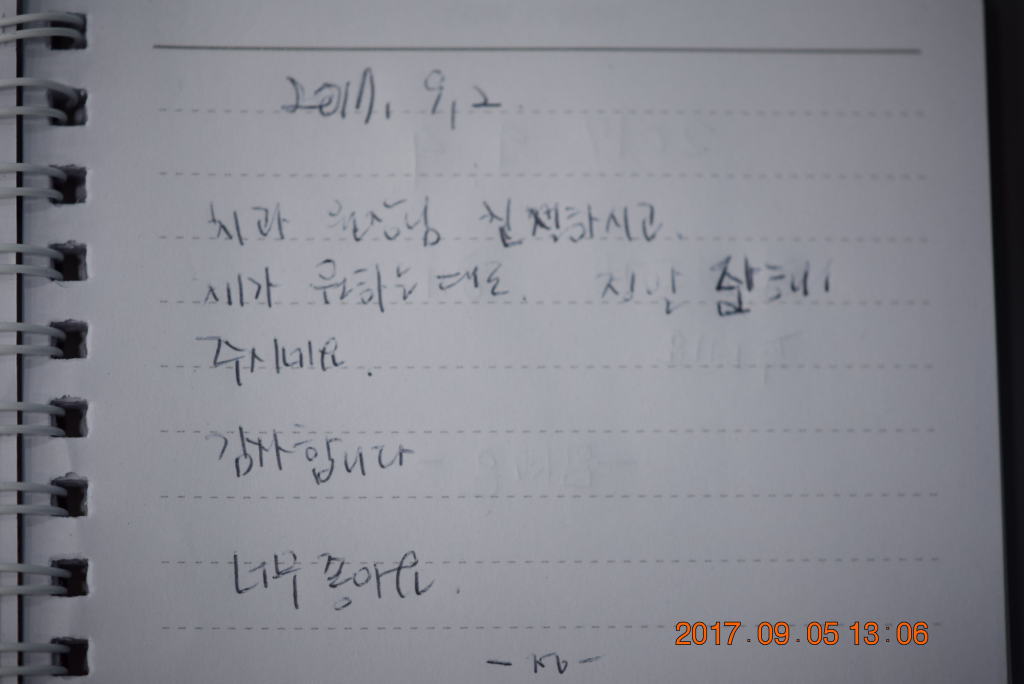 2017. 9, 2.
치과 원장님 친절하시고.
제가 원하는대로. 치안 잘해
주시네요.
감사합니다
너무 좋아요.
2017.09.05 13:06